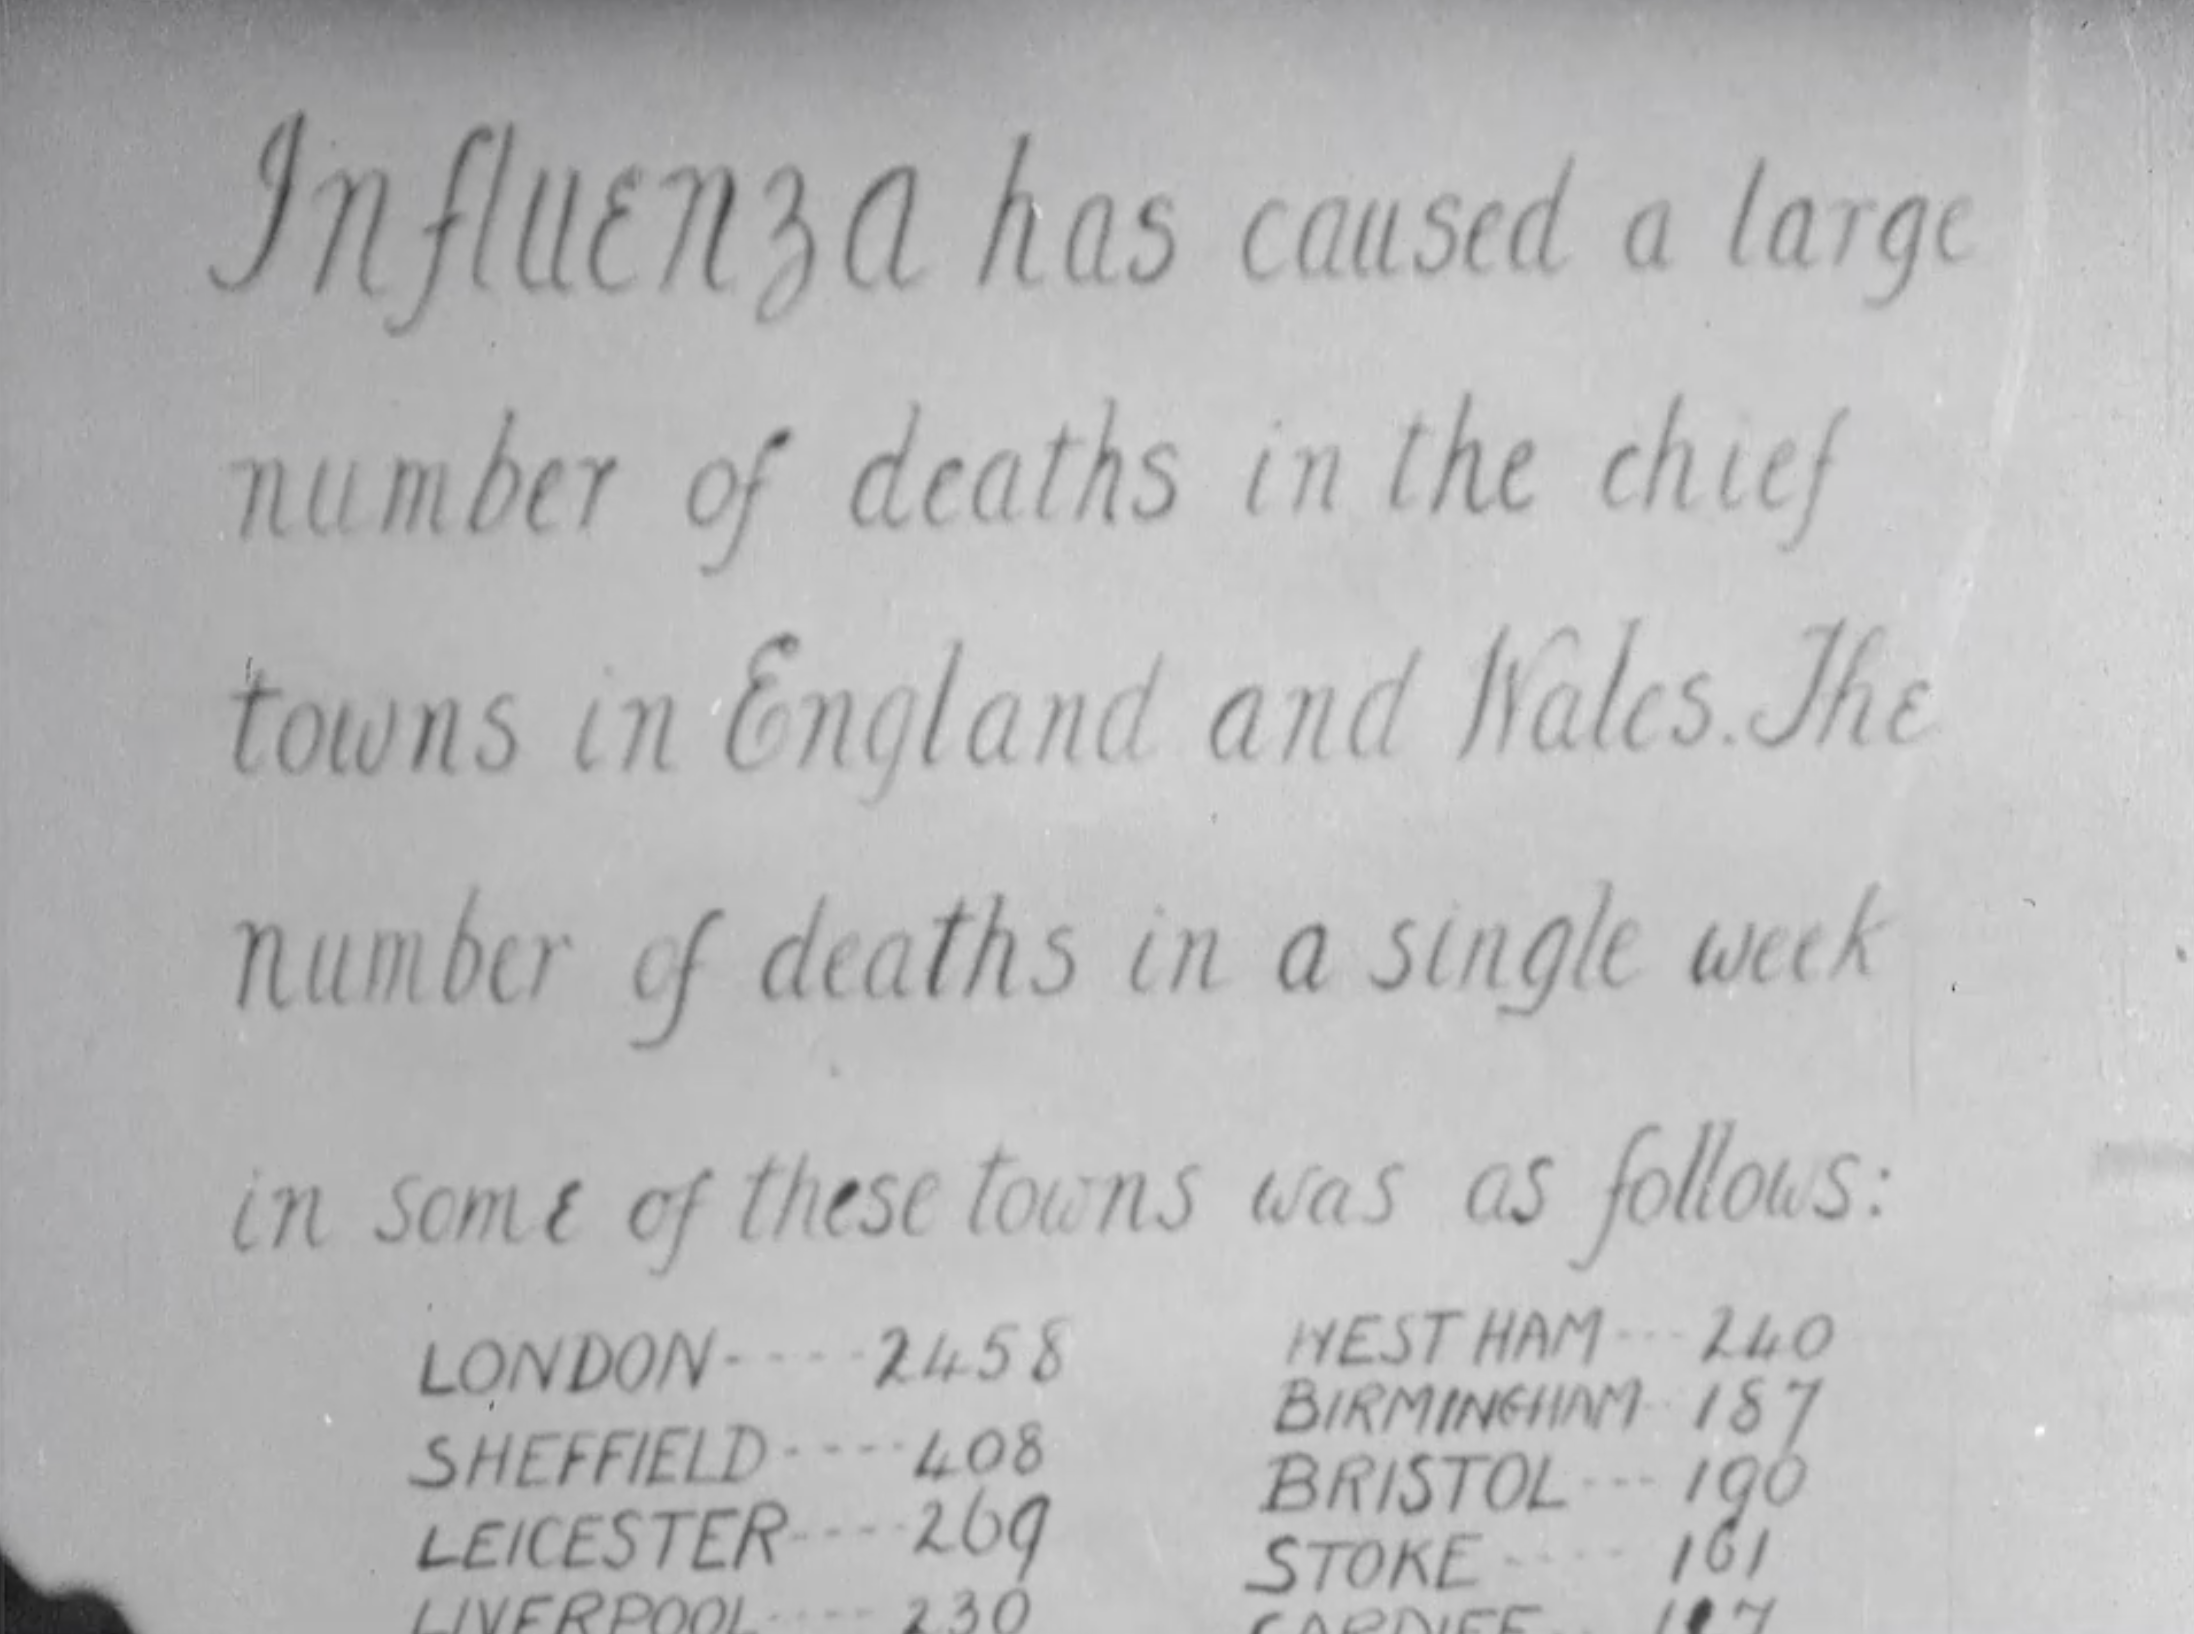 Influenza has caused a large
number of deaths in the chief
towns in England and Wales. The
number of deaths in a single week
in some of these towns was as follows:
LONDON ---- 2458
SHEFFIELD ---- 408
LEICESTER ---- 269
LIVERPOOL ---- 230
WEST HAM --- 240
BIRMINGHAM -- 187
BRISTOL --- 190
STOKE ---- 161
CARDIFF